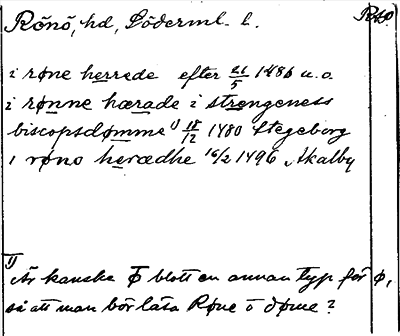 Rönö, hd, Söderml. l.
R40
i røne herrede efter 21/5 1486 u.o.
i rønne hærade i strengeness
biscopsdømme 1) 18/12 1480 Stegeborg
i røno herædhe 16/2 1496 Akalby
1) Är kanske ō blott en annan typ för ø,
så att man bör läsa Røne o døme?